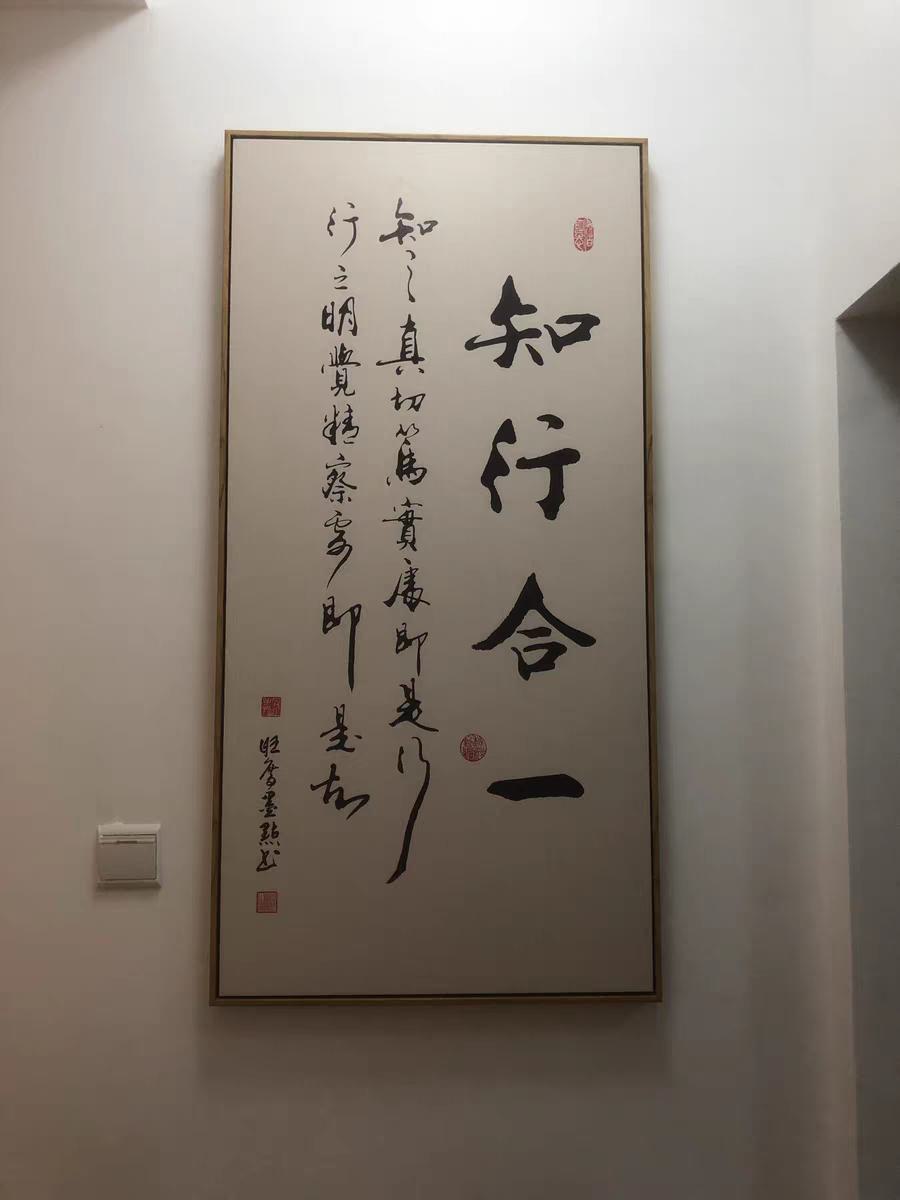 知行合一
知之真切篤實處即是行
行之明覺精察處即是知
墨點